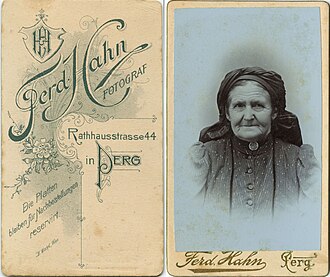 Ferd. Hahn
FOTOGRAF
Rathhausstrasse 44
in PERG
Die Platten
bleiben für Nachbestellungen
reservirt.
Ferd. Hahn
Perg.